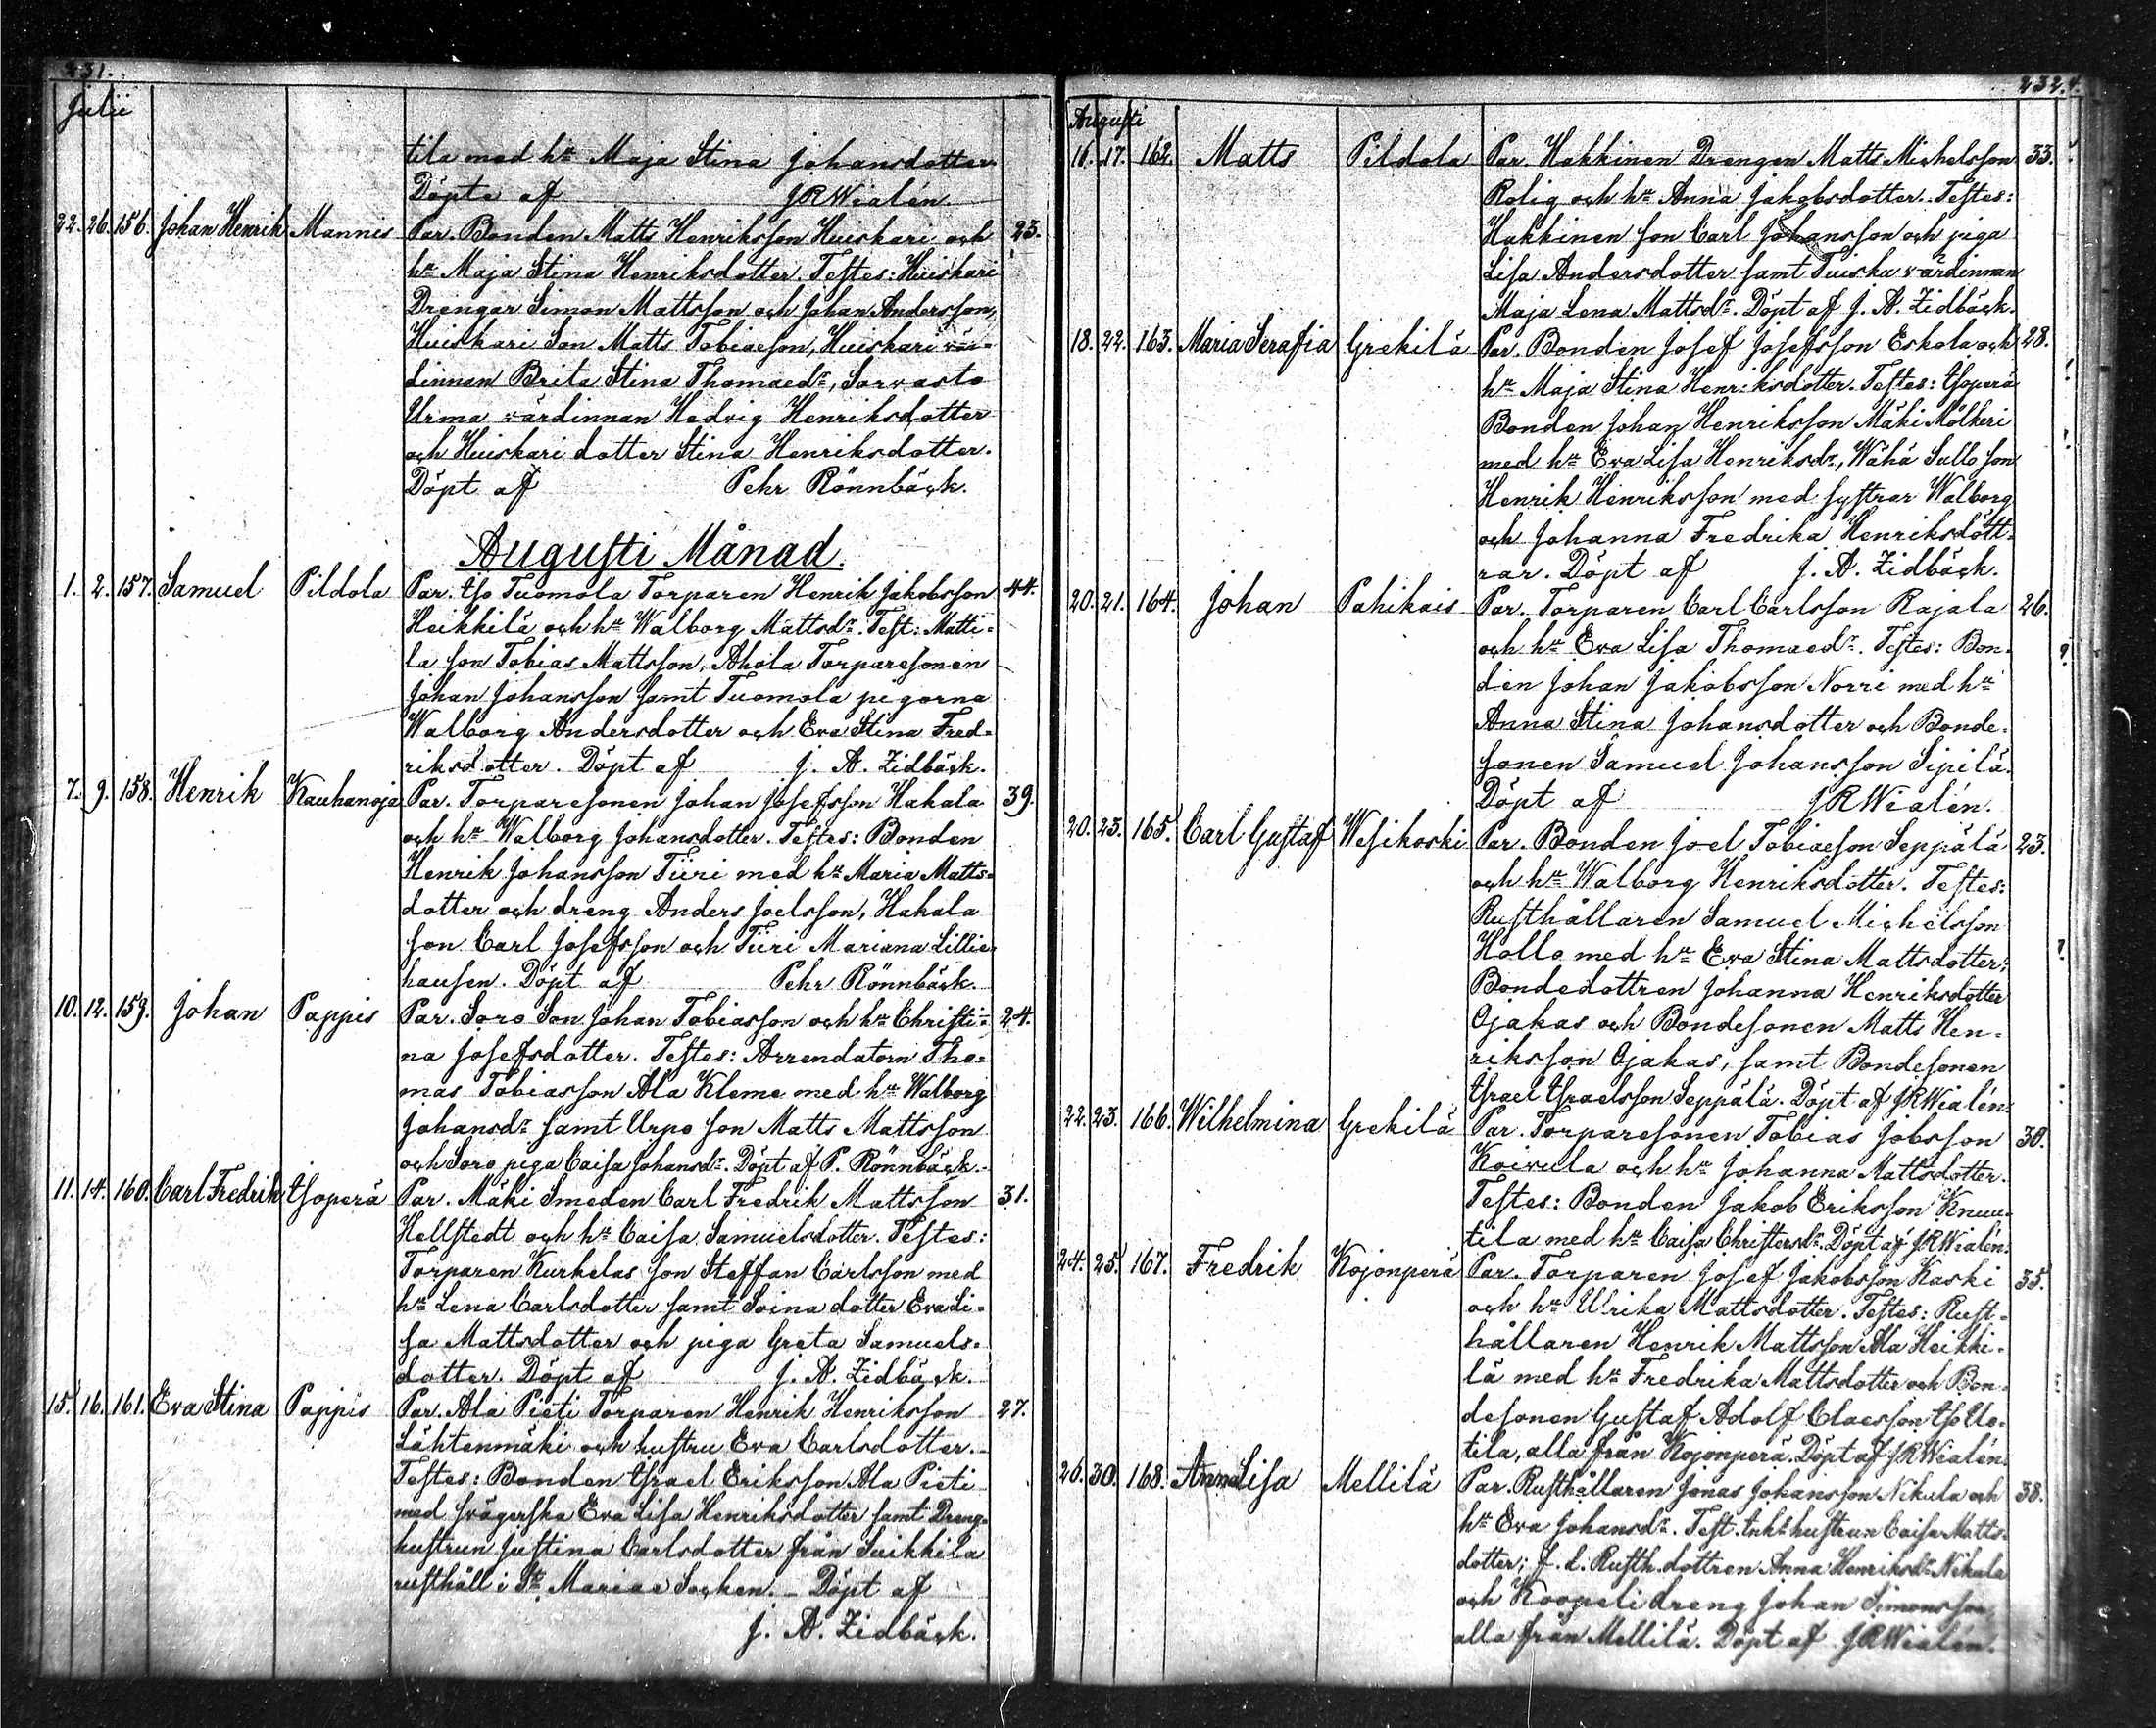 231.
Julii
tila med hu Maja Stina Johansdotter
Döpte af JRWialén
22. 26. 156. Johan Henrik Mannis Par. Bonden Matts Henriksson Huiskari och 23.
hu Maja Stina Henriksdotter. Testes: Huiskari
Drengar Simon Mattsson och Johan Andersson,
Huiskari Son Matts Tobiaeson, Huiskari vär-
dinnan Brita Stina Thomaedr, Sorvasto
Urma värdinnan Hedvig Henriksdotter
och Huiskari dotter Stina Henriksdotter.
Döpt af Pehr Rönnbäck.
Augusti Månad.
1. 2. 157. Samuel Pildola Par. Iso Tuomola Torparen Henrik Jakobsson 44.
Heikkilä och hu Walborg Mattsdr. Test: Matti-
la son Tobias Mattsson, Ahola Torparesonen
Johan Johansson samt Tuomola pigorna
Walborg Andersdotter och Eva Stina Fred-
riksdotter. Döpt af J. A. Zidbäck.
7. 9. 158. Henrik Kauhanoja Par. Torparesonen Johan Josefsson Hakala 39.
och hu Walborg Johansdotter. Testes: Bonden
Henrik Johansson Tiiri med hu Maria Matts-
dotter och dreng Anders Joelsson, Hakala
son Carl Josefsson och Tiiri Mariana Lillie-
hausen. Döpt af Pehr Rönnbäck.
10. 12. 159. Johan Pappis Par. Soro Son Johan Tobiasson och hu Christi- 24.
na Josefsdotter. Testes: Arrendatorn Tho-
mas Tobiasson Ala Kleme med hu Walborg
Johansdr samt Urpo son Matts Mattsson
och Soro piga Caisa Johansdr. Döpt af P. Rönnbäck.
11. 14. 160. Carl Fredrik Isoperä Par. Mäki Smeden Carl Fredrik Mattsson 31.
Hellstedt och hu Caisa Samuelsdotter. Testes:
Torparen Kurkelas son Steffan Carlsson med
hu Lena Carlsdotter samt Soina dotter Eva Li-
sa Mattsdotter och piga Greta Samuels-
dotter. Döpt af J. A. Zidbäck.
15. 16. 161. Eva Stina Pappis Par. Ala Pieti Torparen Henrik Henriksson 27.
Lähtenmäki och hustru Eva Carlsdotter.
Testes: Bonden Israel Eriksson Ala Pieti
med svägerska Eva Lisa Henriksdotter samt Dreng-
hustrun Justina Carlsdotter från Suikkila
rusthåll i St. Mariae Socken. Döpt af
J. A. Zidbäck.
232.
Augusti
16. 17. 162. Matts Pildola Par. Hakkinen Drengen Matts Michelsson 33.
Rolig och hu Anna Jakobsdotter. Testes:
Hakkinen son Carl Johansson och piga
Lisa Andersdotter samt Tuisku värdinnan
Maja Lena Mattsdr. Döpt af J. A. Zidbäck.
18. 22. 163. Maria Serafia Grekilä Par. Bonden Josef Josefsson Eskola och 28.
hu Maja Stina Henriksdotter. Testes: Isoperä
Bonden Johan Henriksson Mäki Mölkeri
med hu Eva Lisa Henriksdr, Wähä Sullo son
Henrik Henriksson med systrar Walborg
och Johanna Fredrika Henriksdött-
rar. Döpt af J. A. Zidbäck.
20. 21. 164. Johan Pahikais Par. Torparen Carl Carlsson Rajala 26.
och hu Eva Lisa Thomaedr. Testes: Bon-
den Johan Jakobsson Norri med hu
Anna Stina Johansdotter och Bonde-
sonen Samuel Johansson Sipilä.
Döpt af JRWialén.
20. 23. 165. Carl Gustaf Wesikoski Par. Bonden Joel Tobiaeson Seppälä 23.
och hu Walborg Henriksdotter. Testes:
Rusthållaren Samuel Michelsson
Hollo med hu Eva Stina Mattsdotter;
Bondedottren Johanna Henriksdotter
Ojakas och Bondesonen Matts Hen-
riksson Ojakas, samt Bondesonen
Israel Israelsson Seppälä. Döpt af JRWialén.
22. 23. 166. Wilhelmina Grekilä Par. Torparesonen Tobias Jobsson 30.
Koivula och hu Johanna Mattsdotter.
Testes: Bonden Jakob Eriksson Knuu-
tila med hu Caisa Christersdr. Döpt af JRWialén.
24. 25. 167. Fredrik Kojonperä Par. Torparen Josef Jakobsson Kaski 35.
och hu Ulrika Mattsdotter. Testes: Rust-
hållaren Henrik Mattsson Ala Heikki-
lä med hu Fredrika Mattsdotter och Bon-
desonen Gustaf Adolf Claesson Iso Uo-
tila, alla från Kojonperä. Döpt af JRWialén.
26. 30. 168. Anna Lisa Mellilä Par. Rusthållaren Jonas Johansson Nikula och 38.
hu Eva Johansdr. Test. Enkehustrun Caisa Matts-
dotter; f. d. Rusth. dottren Anna Henriksdr Nikula
och Koopeli dreng Johan Simonsson
alla från Mellilä. Döpt af JRWialén.